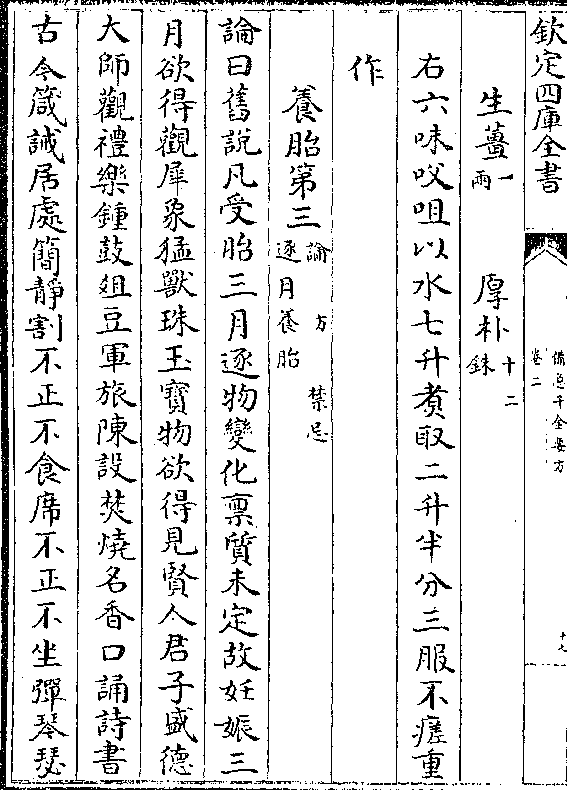 欽定四庫全書
備急千金要方
卷二
十九
生薑一兩
厚朴十二銖
右六味㕮咀以水七升煮取二升半分三服不瘥重
作
養胎第三
論 方 禁忌
逐月養胎
論曰舊說凡受胎三月逐物變化禀質未定故妊娠三
月欲得觀犀象猛獸珠玉寶物欲得見賢人君子盛德
大師觀禮樂鍾鼓俎豆軍旅陳設焚燒名香口誦詩書
古今箴誡居處簡靜割不正不食席不正不坐彈琴瑟